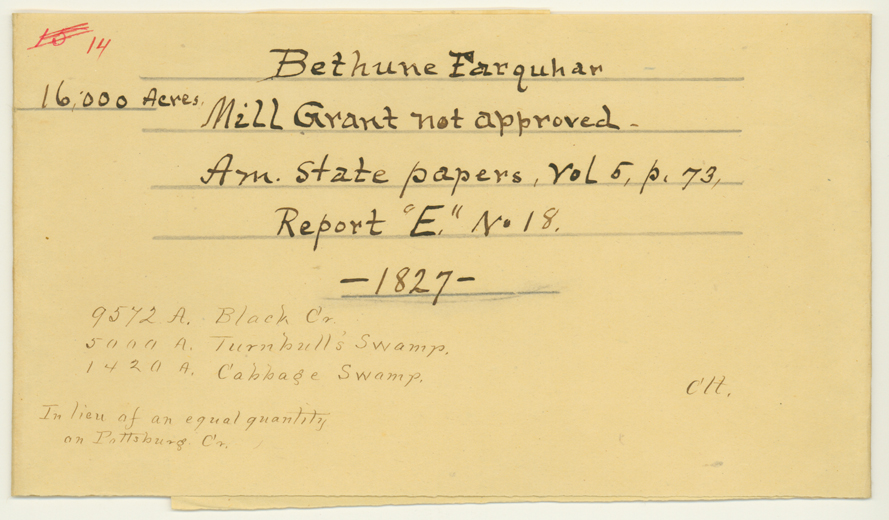 15 14
Bethune Farquhar
16,000 Acres.
Mill Grant not approved -
Am. State papers, Vol 5, p. 73,
Report "E." No 18.
-1827-
9572 A. Black Cr.
5000 A. Turnbull's Swamp.
1420 A. Cabbage Swamp.
CH.
In lieu of an equal quantity
on Pottsburg Cr.